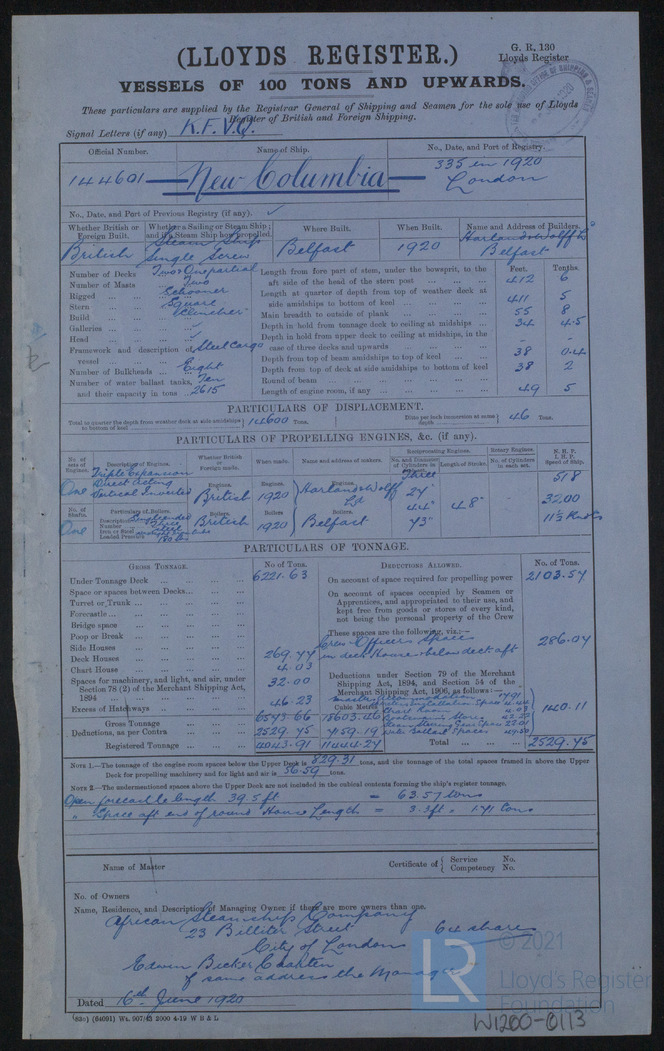 (LLOYDS REGISTER.)
G. R. 130
Lloyds Register
VESSELS OF 100 TONS AND UPWARDS.
These particulars are supplied by the Registrar General of Shipping and Seamen for the sole use of Lloyds
Register of British and Foreign Shipping.
Signal Letters (if any) K.F.V.Q.
Official Number. Name of Ship. No., Date, and Port of Registry.
144601 New Columbia 335 in 1920
London
No., Date, and Port of Previous Registry (if any).
Whether British or Foreign Built. Whether a Sailing or Steam Ship; and if a Steam Ship how propelled. Where Built. When Built. Name and Address of Builders.
British Steam Ship Single Screw Belfast 1920 Harland & Wolff Ld Belfast
Number of Decks Two & One partial
Number of Masts Two
Rigged Schooner
Stern Square
Build Clincher
Galleries
Head
Framework and description of vessel Steel Cargo
Number of Bulkheads Eight
Number of water ballast tanks, Ten
and their capacity in tons 2615
Feet. Tenths.
Length from fore part of stem, under the bowsprit, to the aft side of the head of the stern post 412 6
Length at quarter of depth from top of weather deck at side amidships to bottom of keel 411 5
Main breadth to outside of plank 55 8
Depth in hold from tonnage deck to ceiling at midships 34 4.5
Depth in hold from upper deck to ceiling at midships, in the case of three decks and upwards - -
Depth from top of beam amidships to top of keel 38 0.4
Depth from top of deck at side amidships to bottom of keel 38 2
Round of beam
Length of engine room, if any 49 5
PARTICULARS OF DISPLACEMENT.
Total to quarter the depth from weather deck at side amidships to bottom of keel 14600 Tons. Ditto per inch immersion at same depth 46 Tons.
PARTICULARS OF PROPELLING ENGINES, &c. (if any).
No. of sets of Engines. Description of Engines. Whether British or Foreign made. When made. Name and address of makers. Reciprocating Engines. Rotary Engines. N.H.P. I.H.P. Speed of Ship.
No. and Diameter of Cylinders in each set. Length of Stroke. No. of Cylinders in each set.
One Triple Expansion Direct Acting Vertical Inverted Engines. British Engines. 1920 Engines. Harland & Wolff Ld Three 27" 44" 73" 48" 518
3200
No. of Shafts. Particulars of Boilers. Boilers. Boilers Boilers.
One Description Number Three Iron or Steel Steel Loaded Pressure British 1920 Belfast 11½ Knots
PARTICULARS OF TONNAGE.
GROSS TONNAGE. No of Tons.
Under Tonnage Deck 6221.63
Space or spaces between Decks
Turret or Trunk
Forecastle
Bridge space
Poop or Break
Side Houses
Deck Houses 269.77
Chart House 4.03
Spaces for machinery, and light, and air, under Section 78 (2) of the Merchant Shipping Act, 1894 32.00
Excess of Hatchways 46.23
Cubic Metres
Gross Tonnage 6573.66 18603.46
Deductions, as per Contra 2529.75 7159.19
Registered Tonnage 4043.91 11444.27
DEDUCTIONS ALLOWED. No. of Tons.
On account of space required for propelling power 2103.57
On account of spaces occupied by Seamen or Apprentices, and appropriated to their use, and kept free from goods or stores of every kind, not being the personal property of the Crew
These spaces are the following, viz.:-
Crew & Officers Space
in deck House & below deck aft 286.07
Deductions under Section 79 of the Merchant Shipping Act, 1894, and Section 54 of the Merchant Shipping Act, 1906, as follows:-
Chart Room 4.03
Boatswains Stores
Water Ballast Spaces
140.11
Total 2529.75
NOTE 1.—The tonnage of the engine room spaces below the Upper Deck is 829.31 tons, and the tonnage of the total spaces framed in above the Upper
Deck for propelling machinery and for light and air is 56.59 tons.
NOTE 2.—The undermentioned spaces above the Upper Deck are not included in the cubical contents forming the ship's register tonnage.
Open forecastle length 39.5 ft = 63.57 tons
" Space aft end of round House Length = 3.3 ft = 1.71 tons
Name of Master Certificate of { Service No.
Competency No.
No. of Owners
Name, Residence, and Description of Managing Owner if there are more owners than one.
African Steamship Company
23 Billiter Street 64 shares
City of London
Edwin Bicker Caarten
of same address the Manager
Dated 16th June 1920
(83b) (64091) Wt. 907/43 2000 4-19 W B & L
LR
© 2021
Lloyd's Register
Foundation
W1200-0113